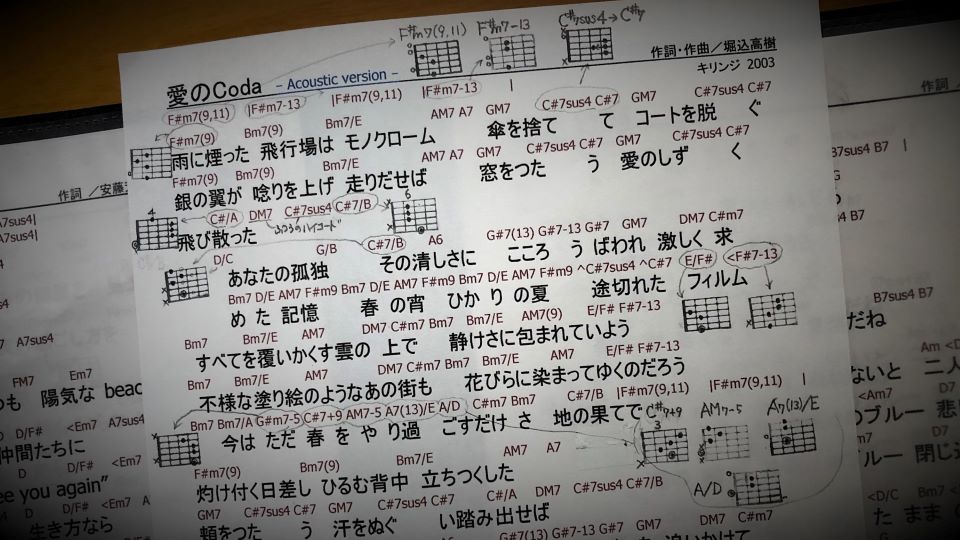 F#m7(9,11) F#m7-13 C#7sus4→C#7
愛のCoda – Acoustic version –
作詞・作曲／堀込高樹
キリンジ 2003
F#m7(9,11) |F#m7-13 |F#m7(9,11) |F#m7-13 |
F#m7(9) Bm7(9) Bm7/E AM7 A7 GM7 C#7sus4 C#7 GM7 C#7sus4 C#7
雨に煙った 飛行場は モノクローム 傘を捨て て コートを脱 ぐ
F#m7(9) Bm7(9) Bm7/E AM7 A7 GM7 C#7sus4 C#7 GM7 C#7sus4 C#7
銀の翼が 唸りを上げ 走りだせば 窓をつた う 愛のしず く
4 C#/A DM7 C#7sus4 C#7/B 6
飛び散った ふつうのハイコード
D/C G/B C#7/B A6 G#7(13) G#7-13 G#7 GM7 DM7 C#m7
あなたの孤独 その清しさに こころ う ばわれ 激しく 求
Bm7 D/E AM7 F#m9 Bm7 D/E AM7 F#m9 Bm7 D/E AM7 F#m9 ^C#7sus4 ^C#7 E/F# <F#7-13
め た 記憶 春 の宵 ひか り の夏 途切れた フィルム
Bm7 Bm7/E AM7 DM7 C#m7 Bm7 Bm7/E AM7(9) E/F# F#7-13
すべてを覆いかくす雲の 上で 静けさに包まれていよう
Bm7 Bm7/E AM7 DM7 C#m7 Bm7 Bm7/E AM7 E/F# F#7-13
不様な塗り絵のようなあの街も 花びらに染まってゆくのだろう
Bm7 Bm7/A G#m7-5 C#7+9 AM7-5 A7(13)/E A/D C#m7 Bm7 C#7/B |F#m7(9,11) |F#m7(9,11) |
今は ただ 春 を や り過 ごすだけ さ 地の果てで
C#7+9 AM7-5 A7(13)/E
3
F#m7(9) Bm7(9) Bm7/E AM7 A7
灼け付く日差し ひるむ背中 立ちつくした
A/D
GM7 C#7sus4 C#7 GM7 C#7sus4 C#7 C#/A DM7 C#7sus4 C#7/B
頬をつた う 汗をぬぐ い踏み出せば
G#7(13) G#7-13 G#7 GM7 DM7 C#m7
作詞 ／安藤
A7sus4|
A7sus4|
A7sus4
FM7 Em7
も 陽気な beac
D/F# <Em7 A7sus4
仲間たちに
D D/F# <Em7
ee you again”
D D/F# <Em7
生き方なら
作詞
B7sus4 B7 |
B7sus4 B7
だね
Am <D
ないと 二人
<Am7 D7
のブルー 悲
D7
ブルー 閉じ込
<D/C Bm7
た まま